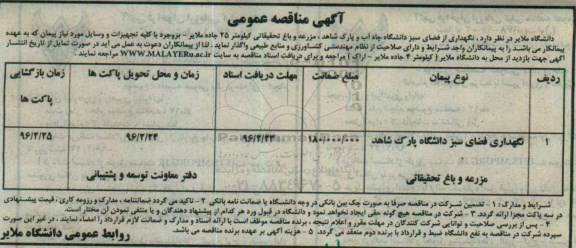 آگهی مناقصه عمومی
دانشگاه ملایر در نظر دارد ، نگهداری از فضای سبز دانشگاه چاه آب و پارک شاهد ، مزرعه و باغ تحقیقاتی کیلومتر ۲۵ جاده ملایر - بروجرد با کلیه تجهیزات و وسایل مورد نیاز پیمان که به عهده
پیمانکار می باشد را به پیمانکاران واجد شرایط و دارای صلاحیت از نظام مهندسی کشاورزی و منابع طبیعی واگذار نماید . لذا از پیمانکاران دعوت به عمل می آید در صورت تمایل از تاریخ انتشار
آگهی جهت بازدید از محل به دانشگاه ملایر ( کیلومتر ۴ جاده ملایر - اراک ) مراجعه و برای دریافت اسناد مناقصه به سایت WWW.MALAYERu.ac.ir مراجعه نمایند .
ردیف نوع پیمان مبلغ ضمانت مهلت دریافت اسناد زمان و محل تحویل پاکت ها زمان بازگشایی پاکت ها
۱ نگهداری فضای سبز دانشگاه پارک شاهد مزرعه و باغ تحقیقاتی ۱۸۰/۰۰۰/۰۰۰ ۹۶/۲/۲۳ ۹۶/۲/۲۴ دفتر معاونت توسعه و پشتیبانی ۹۶/۲/۲۵
شرایط و مدارک : ۱ - تضمین شرکت در مناقصه صرفا به صورت چک بین بانکی در وجه دانشگاه یا ضمانت نامه بانکی ۲ - تاکید می گردد ضمانتنامه ، مدارک و رزومه کاری ، قیمت پیشنهادی
در سه پاکت مجزا ارائه گردد. ۳ - شرکت در مناقصه هیچ گونه حقی ایجاد نخواهد نمود و دانشگاه در قبول ورد هر کدام از پیشنهاد دهندگان و یا منتفی نمودن آن مختار است.
۴ - پس از بررسی صلاحیت و توانایی شرکت کنندگان در مهلت مقرر و اعلام نتیجه ، برنده مناقصه موظف است با ارائه اسناد و مدارک و ضمانت لازم قرارداد را امضاء نمایند . در غیر این صورت
سپرده شرکت در مناقصه به نفع دانشگاه ضبط و قرارداد با برنده دوم منعقد می گردد. ۵ - هزینه آگهی بر عهده برنده مناقصه می باشد.
روابط عمومی دانشگاه ملایر